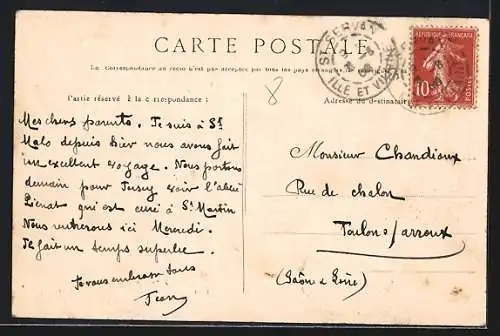 CARTE POSTALE
La Correspondance au recto n'est pas acceptée par tous les pays étrangers
ST SERVAN
ILLE ET VILAINE
REPUBLIQUE FRANÇAISE
10
POSTES
Partie réservé à la correspondance
Adresse du destinataire
8
Mes chers parents. Je suis à St
Malo depuis hier nous avons fait
un excellent voyage. Nous partons
demain pour voir l'abbé
qui est curé à St Martin
Nous rentrerons ici Mercredi.
Il fait un temps superbe.
Je vous embrasse tous
Jean
Monsieur Chandioux
Rue de chalon
Toulon s/arroux
(Saône & Loire)